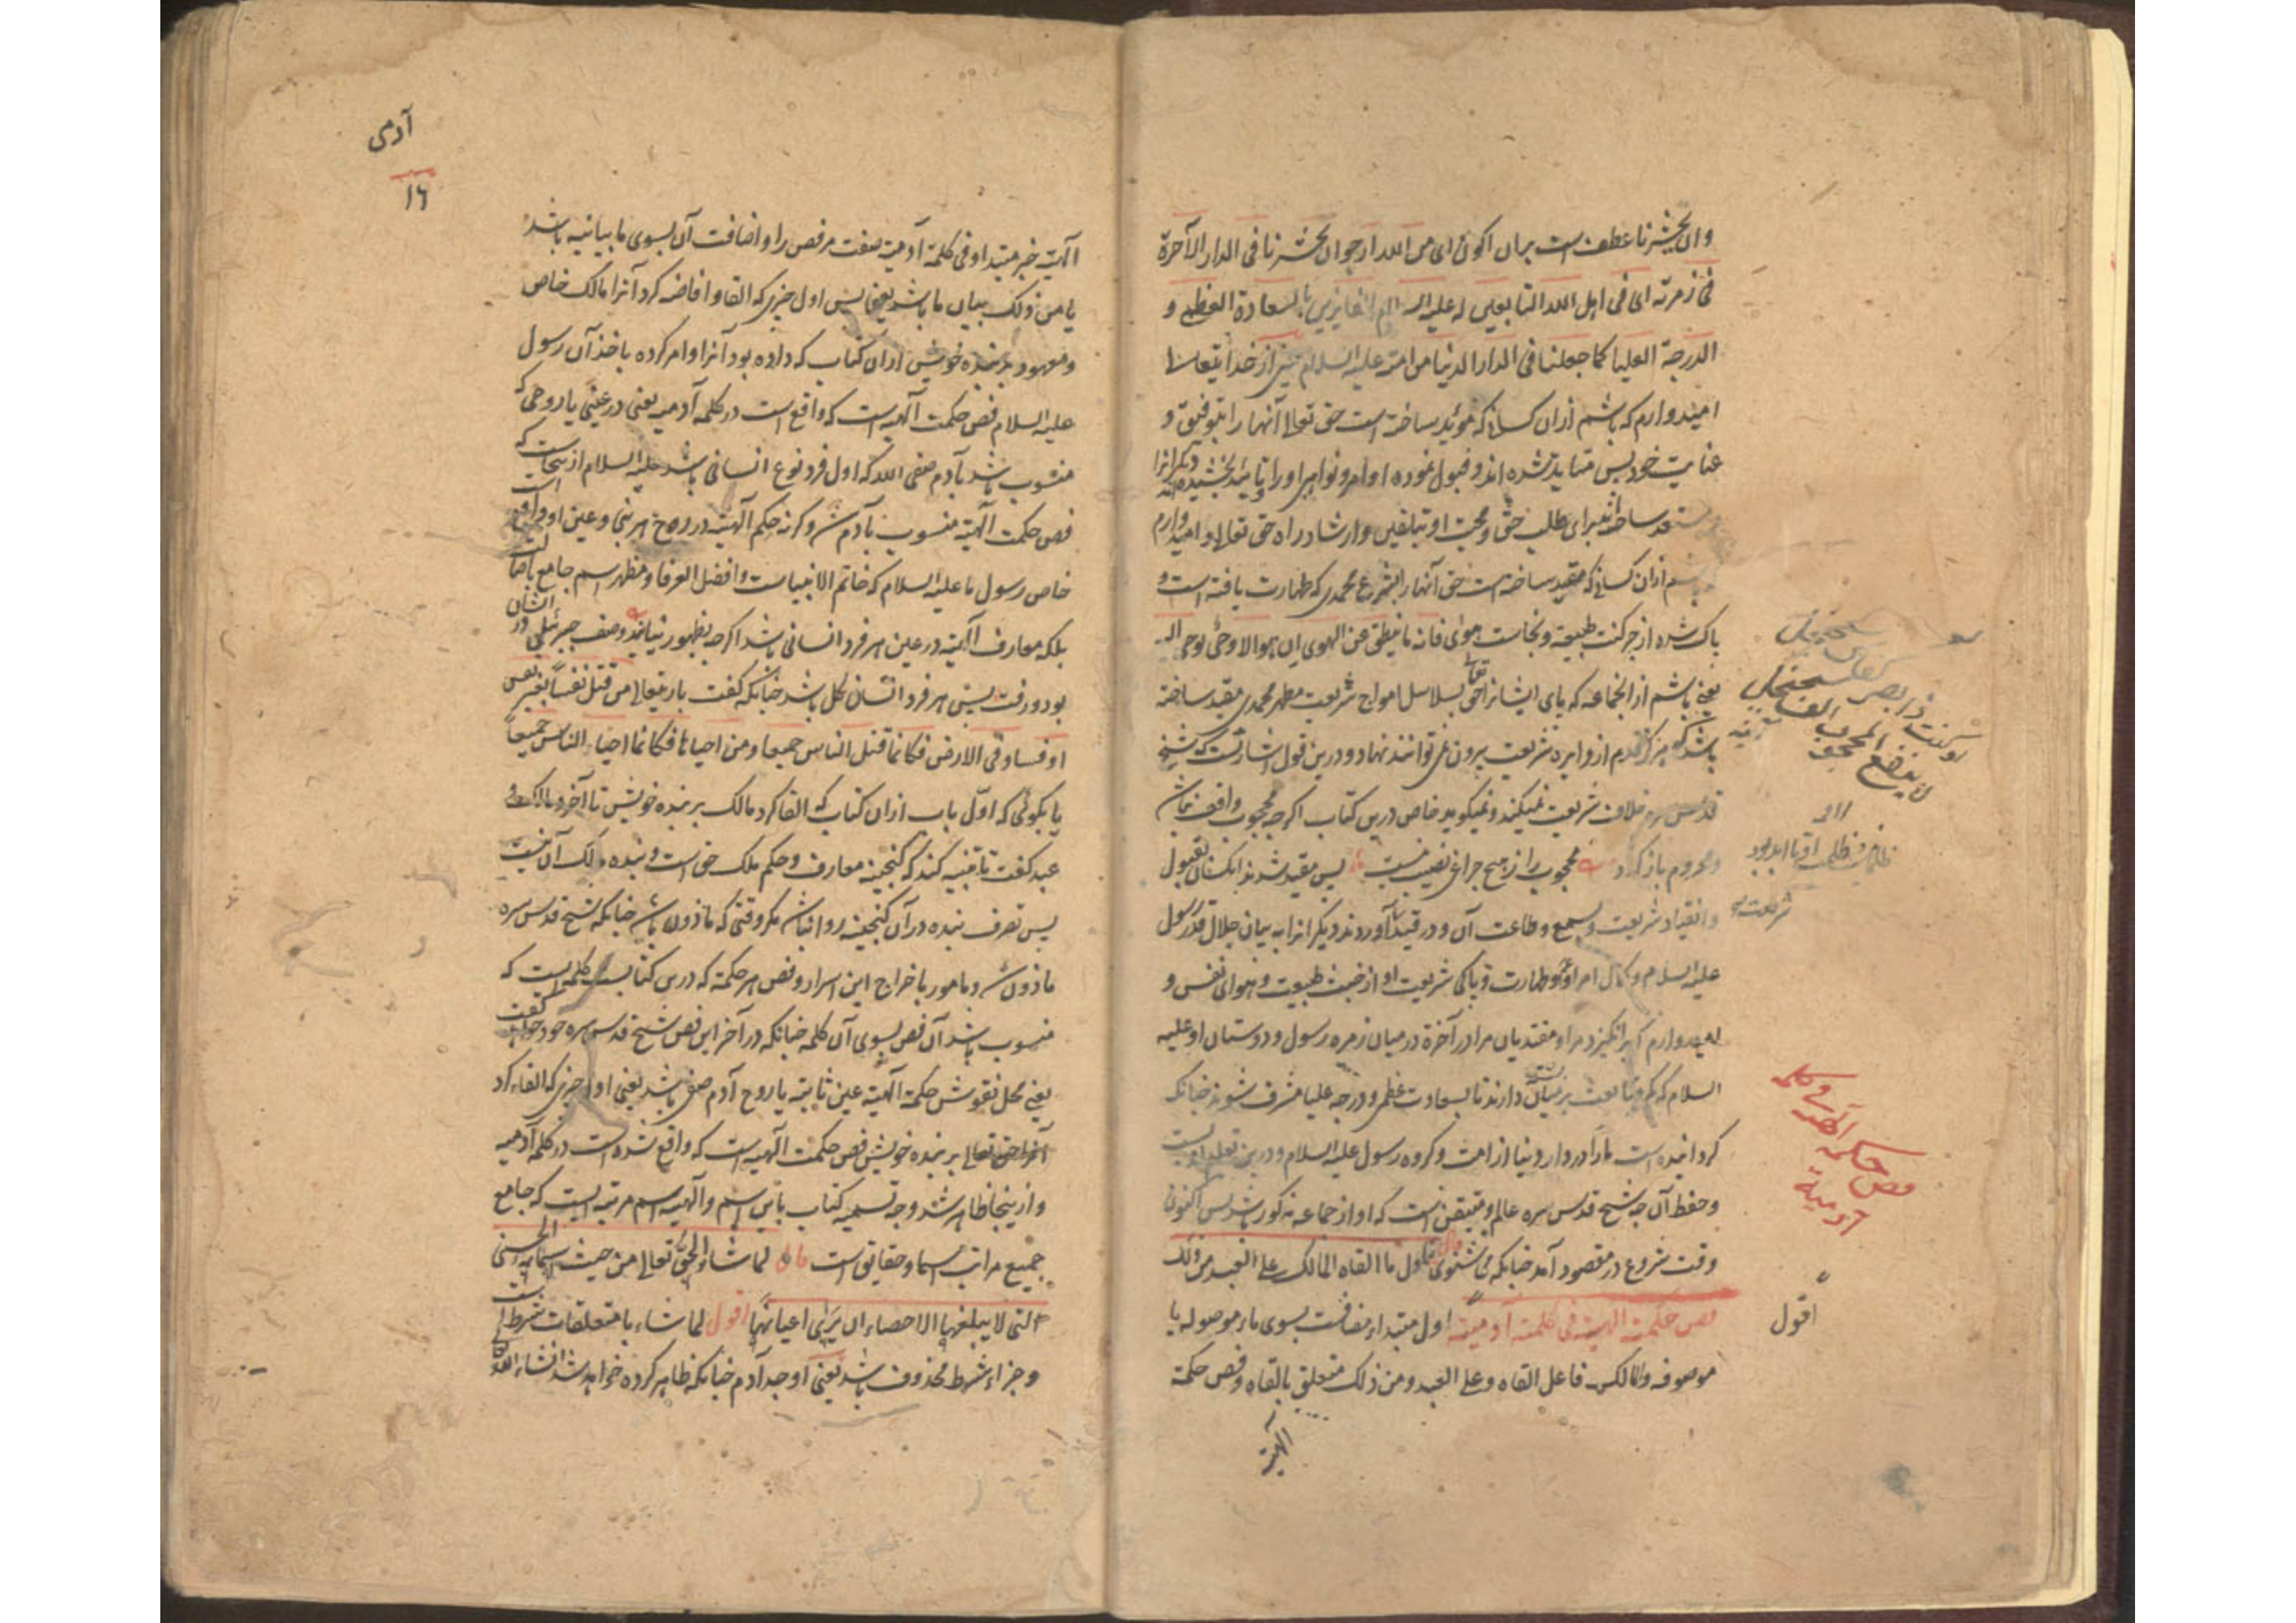 وان یحشرنا عطف است بران اکون ای من الله ارجو ان یحشرنا فی الدار الآخرة
فی زمرته ای فی اهل الله التابعین له علیه السلام الفایزین بالسعادة العظمی و
الدرجة العلیا کما جعلنا فی الدار الدنیا من امته علیه السلام یعنی از خدا یتعالی
امیدوارم که باشم ازان کسانی که موئید ساخته است حق تعالی آنها را بتوفیق و
عنایت خود پس متاید شده اند و قبول نموده اوامر و نواهی او را و تایید بخشیده اند دیگر انرا
ساخته اند برای طلب حق و محبت او بتلقین و ارشاد راه حق تعالی و امیدوارم
باشم ازان کسانی که مقید ساخته است حق آنها را بشرع محمدی که طهارت یافته است و
پاک شده از چرکنت طبیعة و نجاست هوای فانه ما ینطق عن الهوی ان هو الا وحی یوحی الیه
یعنی باشم از الجماعه که پای ایشانرا حق تعالی بسلاسل امواج شریعت مطهر محمدی مقید ساخته
باشد که هرگز قدم از دایره شریعت بیرون نمی توانند نهاد و درین قول اشارتست که شیخ
قدس سره خلاف شریعت نمیکند و نمیکوید خاص درین کتاب اگر چه محجوب واقف نباشد
و محروم باز کردد محجوب را از هیچ چراغی نصیب نیست پس مقید شدند انکسان بقبول
و انقیاد شریعت و بسمع و طاعت آن و در قید آوردند دیگر انرا به بیان جلال قدر رسول
علیه السلام و کمال امر او و طهارت و پاکی شریعت او از خبث طبیعت و هوای نفس و
امیدوارم که برانگیزد مرا و مقتدیان مرا در آخرة در میان زمره رسول و دوستان او علیه
السلام که کمر متابعت بر میان دارند تا بسعادت عظمی و درجه علیا مشرف شوند چنانکه
کردانیده است مارا در دار دنیا از امت و کروه رسول علیه السلام و درین تعلیم ادبست
و حفظ آن چه شیخ قدس سره عالم و متیقن است که او از جماعه مذکور باشد پس اکنون
وقت شروع در مقصود آمد چنانکه می شنوی قال فاول ما القاه المالک علی العبد من ذلک
فص حکمة الهیة فی کلمة آدمیة اول مبتداء مضافست بسوی ماء موصوله یا
موصوفه و المالک فاعل القاه و علی العبد و من ذلک متعلق بالقاه و فص حکمة
الهیة
لا ینفع
شریعت
فص حکمة الهیة فی کلمة
آدمیة
اقول
آدمی
١٦
الهیة خبر مبتدا و فی کلمة آدمیة صفت مر فص را و اضافت آن بسوی ما بیانیه باشد
یا من ذلک بیان ما باشد یعنی پس اول چیزی که القا و افاضه کرد آنرا مالک خاص
و معهود بر بنده خویش ازان کتاب که داده بود آنرا و امر کرده باخذ آن رسول
علیه السلام فص حکمت الهیه است که واقع است در کلمه آدمیه یعنی در عینی یا روحی که
منسوب باشد بآدم صفی الله که اول فرد نوع انسانی باشد علیه السلام از ینجاست که
فص حکمت الهیة منسوب بآدم شد و کرنه حکم الهیة در روح هر نبی و عین او واقع است
خاص رسول ما علیه السلام که خاتم الانبیاست و افضل العرفا و مظهر اسم جامع باصالت
بلکه معارف الهیة در عین هر فرد انسانی باشد اگر چه بظهور نیاید وصف جبرئیلی در انسان
بود و رفت پس هر فرد انسان کل باشد چنانکه گفت باریتعالی من قتل نفسا بغیر نفس
او فساد فی الارض فکانما قتل الناس جمیعا و من احیاها فکانما احیاء الناس جمیعا
یا بکوئی که اول باب ازان کتاب که القا کرد مالک بر بنده خویش تا آخر و مالک و
عبد گفت تا تنبیه کند که گنجینه معارف و حکم ملک حق است و بنده مالک آن نیست
پس تصرف بنده در آن کنجینه روا نباشد مکر وقتی که ماذون باشد چنانکه شیخ قدس سره
ماذون شد و مامور باخراج این اسرار و فص هر حکمة که درین کتابست کلمه ایست که
منسوب باشد آن فص بسوی آن کلمه چنانکه در آخر این فص شیخ قدس سره خود خواهد گفت
یعنی محل نقوش حکمة الهیة عین ثابته یا روح آدم صفی باشد یعنی اول چیزی که القاء کرد
آنرا حق تعالی بر بنده خویش فص حکمت الهیه است که واقع شده است در کلمه آدمیه
و از ینجا ظاهر شد وجه تسمیه کتاب باین اسم و الهیه اسم مرتبه ایست که جامع
جمیع مراتب اسما و حقایق است قال لما شاء الحق تعالی من حیث اسماءه الحسنی
التی لا یبلغها الاحصاء ان یری اعیانها اقول لما شاء با متعلقات شرط است
و جزاء شرط محذوف باشد یعنی اوجد آدم چنانکه ظاهر کرده خواهد شد انشاء الله تعالی